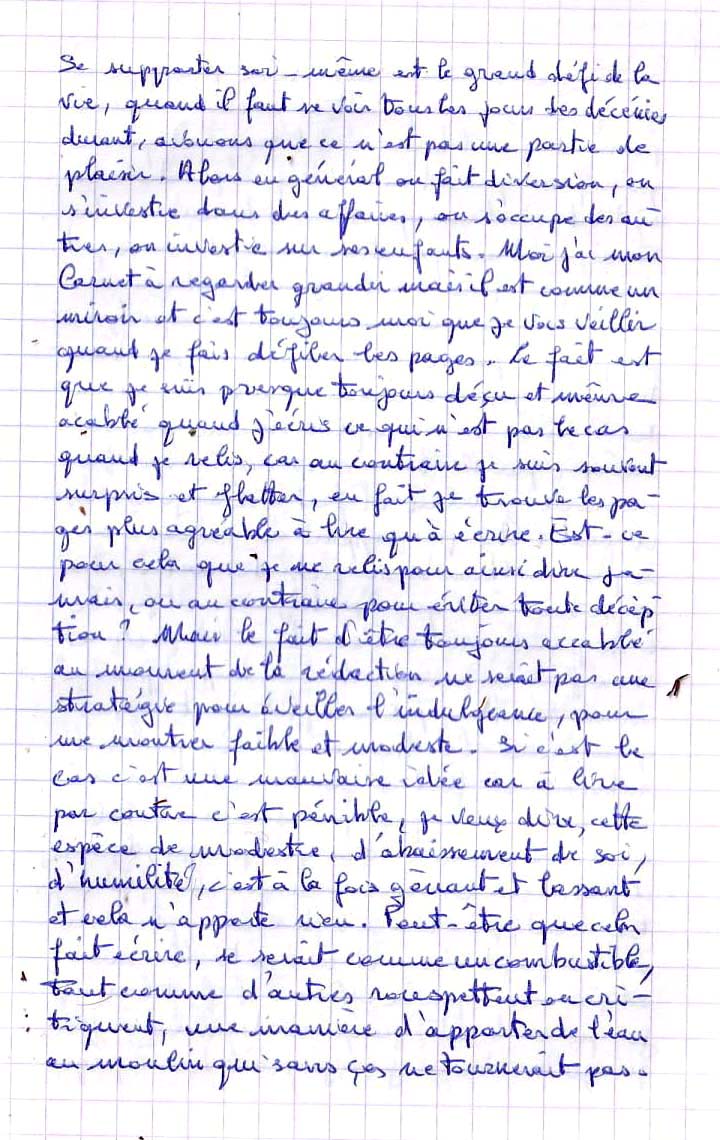 Se supporter soi-même est le grand défi de la
vie, quand il faut se voir tous les jours des décénies
durant, avouons que ce n'est pas une partie de
plaisir. Alors en général on fait diversion, on
s'investie dans des affaires, on s'occupe des au-
tres, on investie sur ses enfants. Moi j'ai mon
Carnet à regarder grandir mais il est comme un
miroir et c'est toujours moi que je vois vieillir
quand je fais défiler les pages. Le fait est
que je suis presque toujours déçu et même
acablé quand j'écris ce qui n'est pas le cas
quand je relis, car au contraire je suis souvent
surpris et flatter, en fait je trouve les pa-
ges plus agréable à lire qu'à écrire. Est-ce
pour cela que je me relis pour ainsi dire ja-
mais, ou au contraire pour éviter toute décep-
tion ? Mais le fait d'être toujours accablé
au moment de la rédaction ne serait pas une
stratégie pour éveiller l'indulgeance, pour
me montrer faible et modeste. Si c'est le
cas c'est une mauvaise idée car à lire
par contre c'est pénible, je veux dire, cette
espèce de modestie, d'abaissement de soi,
d'humilité, c'est à la fois gênant et lassant
et cela n'apporte rien. Peut-être que cela
fait écrire, se serait comme un combustible,
tout comme d'autres rouspettent ou cri-
tiquent, une manière d'apporter de l'eau
au moulin qui sans ças ne tournerait pas.